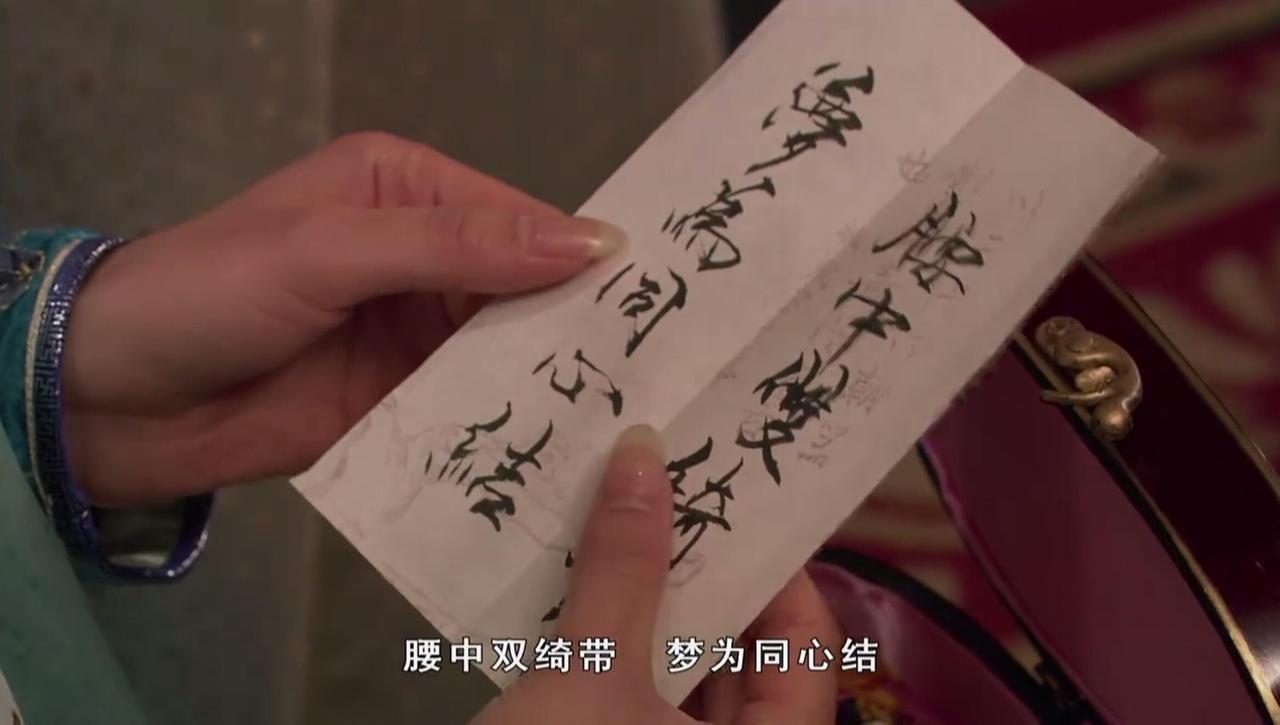 腰中雙綺
夢為同心結
腰中双绮带 梦为同心结